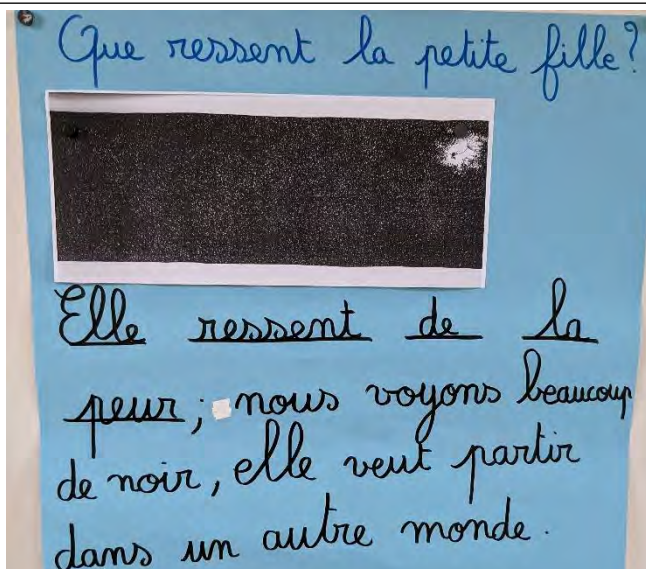 Que ressent la petite fille?
Elle ressent de la
peur; nous voyons beaucoup
de noir, elle veut partir
dans un autre monde.